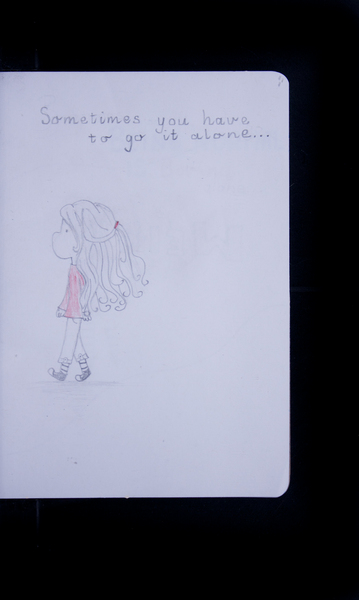 Sometimes you have
to go it alone...